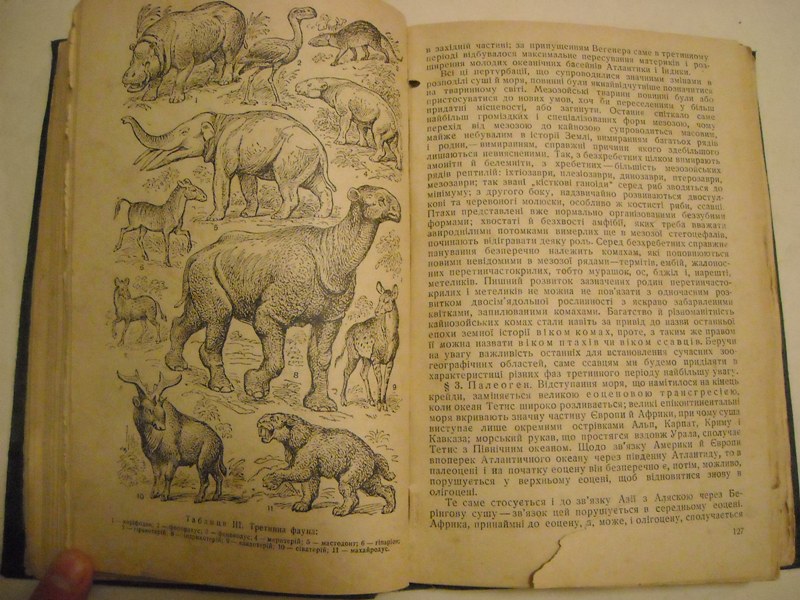 Таблиця III. Третинна фауна:
1 — корифодон; 2 — форораксус; 3 — 4 — меритерій; 5 — мастодонт; 6 — гіпаріон;
8 — 9 — 10 — сіватерій; 11 — махайродус.
в західній частині; за припущенням Вегенера саме в третинному
періоді відбувалося максимальне пересування материків і роз-
ширення молодих океанічних басейнів Атлантики і Індики.
Всі ці пертурбації, що супроводилися значними змінами в
розподілі суші й моря, повинні були якнайвідчутніше позначитися
на тваринному світі. Мезозойські тварини повинні були або
пристосуватися до нових умов, хоч би переселенням у більш
придатні місцевості, або загинути. Останнє спіткало саме
найбільш громіздких і спеціалізованих форм мезозою, чому
перехід від мезозою до кайнозою супроводиться масовим,
майже небувалим в історії Землі, вимиранням багатьох рядів
і родин, — вимиранням, справжні причини якого здебільшого
лишаються нез'ясненими. Так, з безхребетних цілком вимирають
амоніти й белемніти, з хребетних — більшість мезозойських
рядів рептилій: іхтіозаври, плезіозаври, динозаври, птерозаври,
мезозаври; так звані „кісткові ганоїди" серед риб зводяться до
мінімуму; з другого боку, надзвичайно розвиваються двостул-
кові та черевоногі молюски, особливо ж костисті риби, ссавці.
Птахи представлені вже нормально організованими беззубими
формами; хвостаті й безхвості амфібії, яких треба вважати
авиродніілими потомками вимерлих ще в мезозої стегоцефалів,
починають відігравати деяку роль. Серед безхребетних справжнє
панування безперечно належить комахам, які поповнюються
новими невідомими в мезозої рядами — термітів, ембій, жалонос-
них перетинчастокрилих, тобто мурашок, ос, бджіл і, нарешті,
метеликів. Пишний розвиток зазначених родин перетинчасто-
крилих і метеликів не можна не пов'язати з одночасним роз-
витком двосім'ядольної рослинності з яскраво забарвленими
квітками, запилюваними комахами. Багатство й різноманітність
кайнозойських комах стали навіть за привід до назви останньої
епохи земної історії віком комах, проте, з таким же правом
її можна назвати віком птахів чи віком ссавців. Беручи
на увагу важливість останніх для встановлення сучасних зоо-
географічних областей, саме ссавцям ми будемо приділяти в
характеристиці різних фаз третинного періоду найбільшу увагу.
§ 3. Палеоген. Відступання моря, що намітилося на кінець
крейди, заміняється великою еоценовою трансгресією,
коли океан Тетис широко розливається; великі епіконтинентальні
моря вкривають значну частину Європи й Африки, при чому суша
виступає лише окремими острівками Альп, Карпат, Криму і
Кавказа; морський рукав, що простягся вздовж Урала, сполучає
Тетис з Північним океаном. Щодо зв'язку Америки й Європи
впоперек Атлантичного океану через південну Атлантиду, то в
палеоцені і из початку еоцену він безперечно є, потім, можливо,
порушується у верхньому еоцені, щоб відновитися знову в
олігоцені.
Те саме стосується і до зв'язку Азії з Аляскою через Бе-
рінгову сушу — зв'язок цей порушується в середньому еоцені.
Африка, принаймні до еоцену, а, може, і олігоцену, сполучається
127